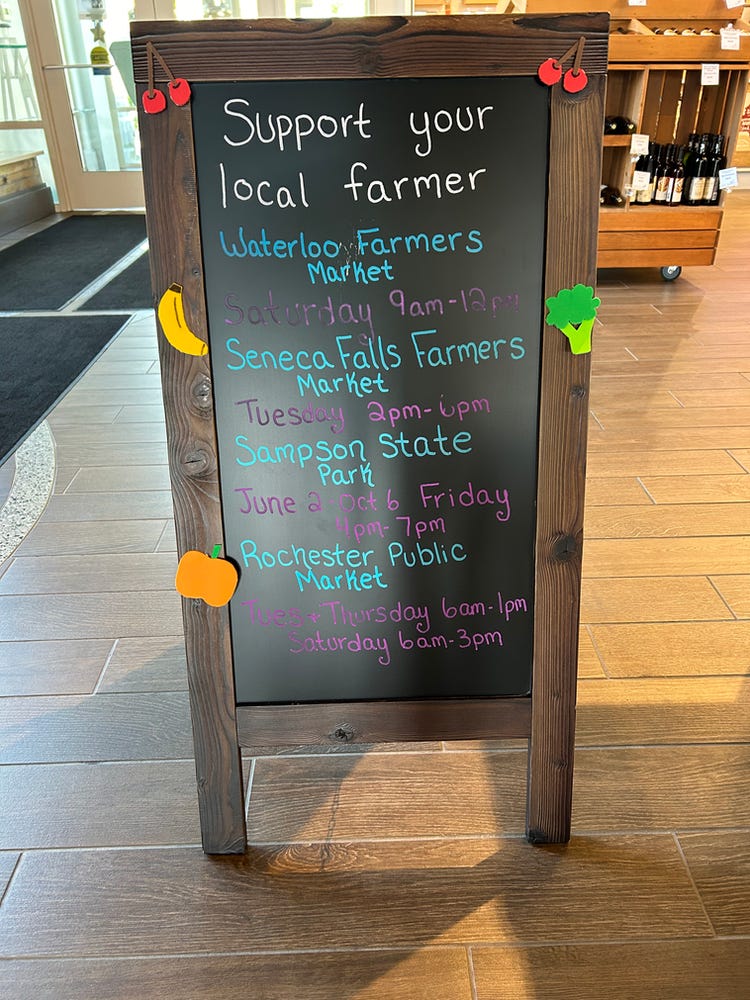 Support your
local farmer
Waterloo Farmers
Market
Saturday 9am-12pm
Seneca Falls Farmers
Market
Tuesday 2pm-6pm
Sampson State
Park
June 2-Oct 6 Friday
4pm-7pm
Rochester Public
Market
Tues + Thursday 6am-1pm
Saturday 6am-3pm